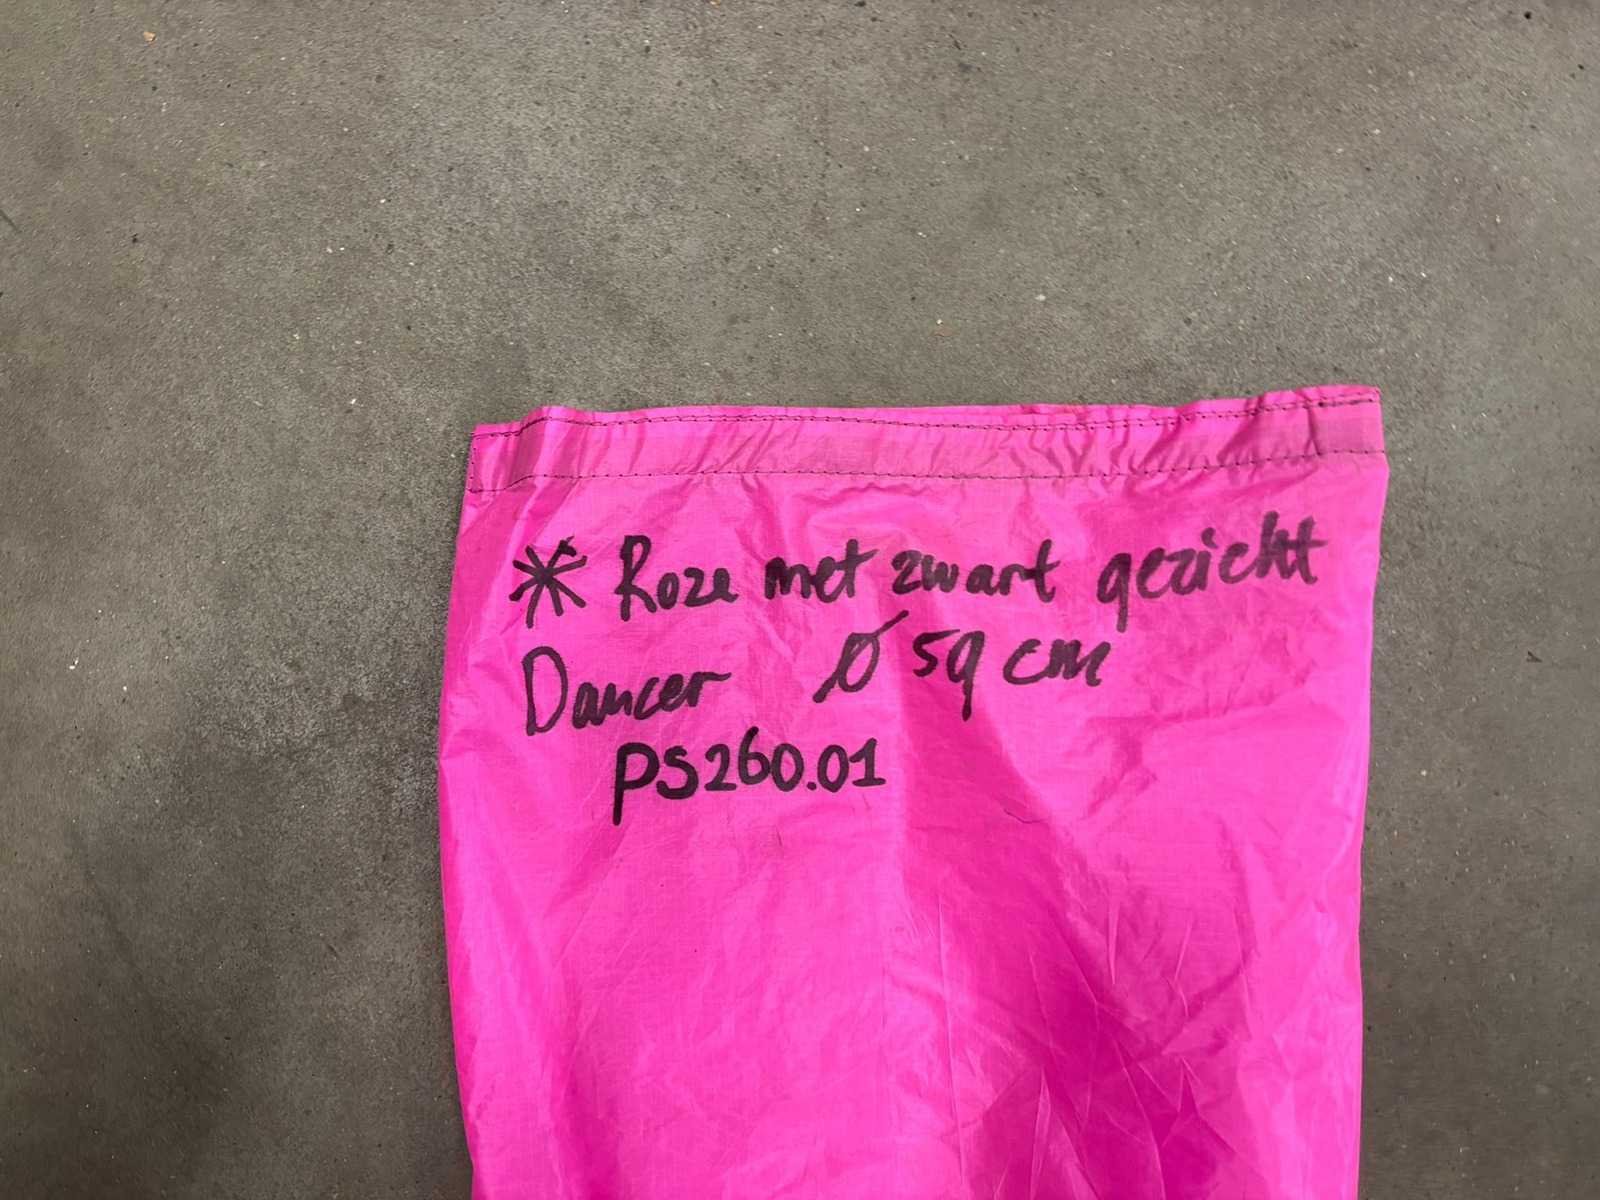 * Roze met zwart gezicht
Dancer Ø 59 cm
PS260.01